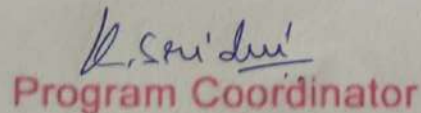 K. Sridevi
Program Coordinator